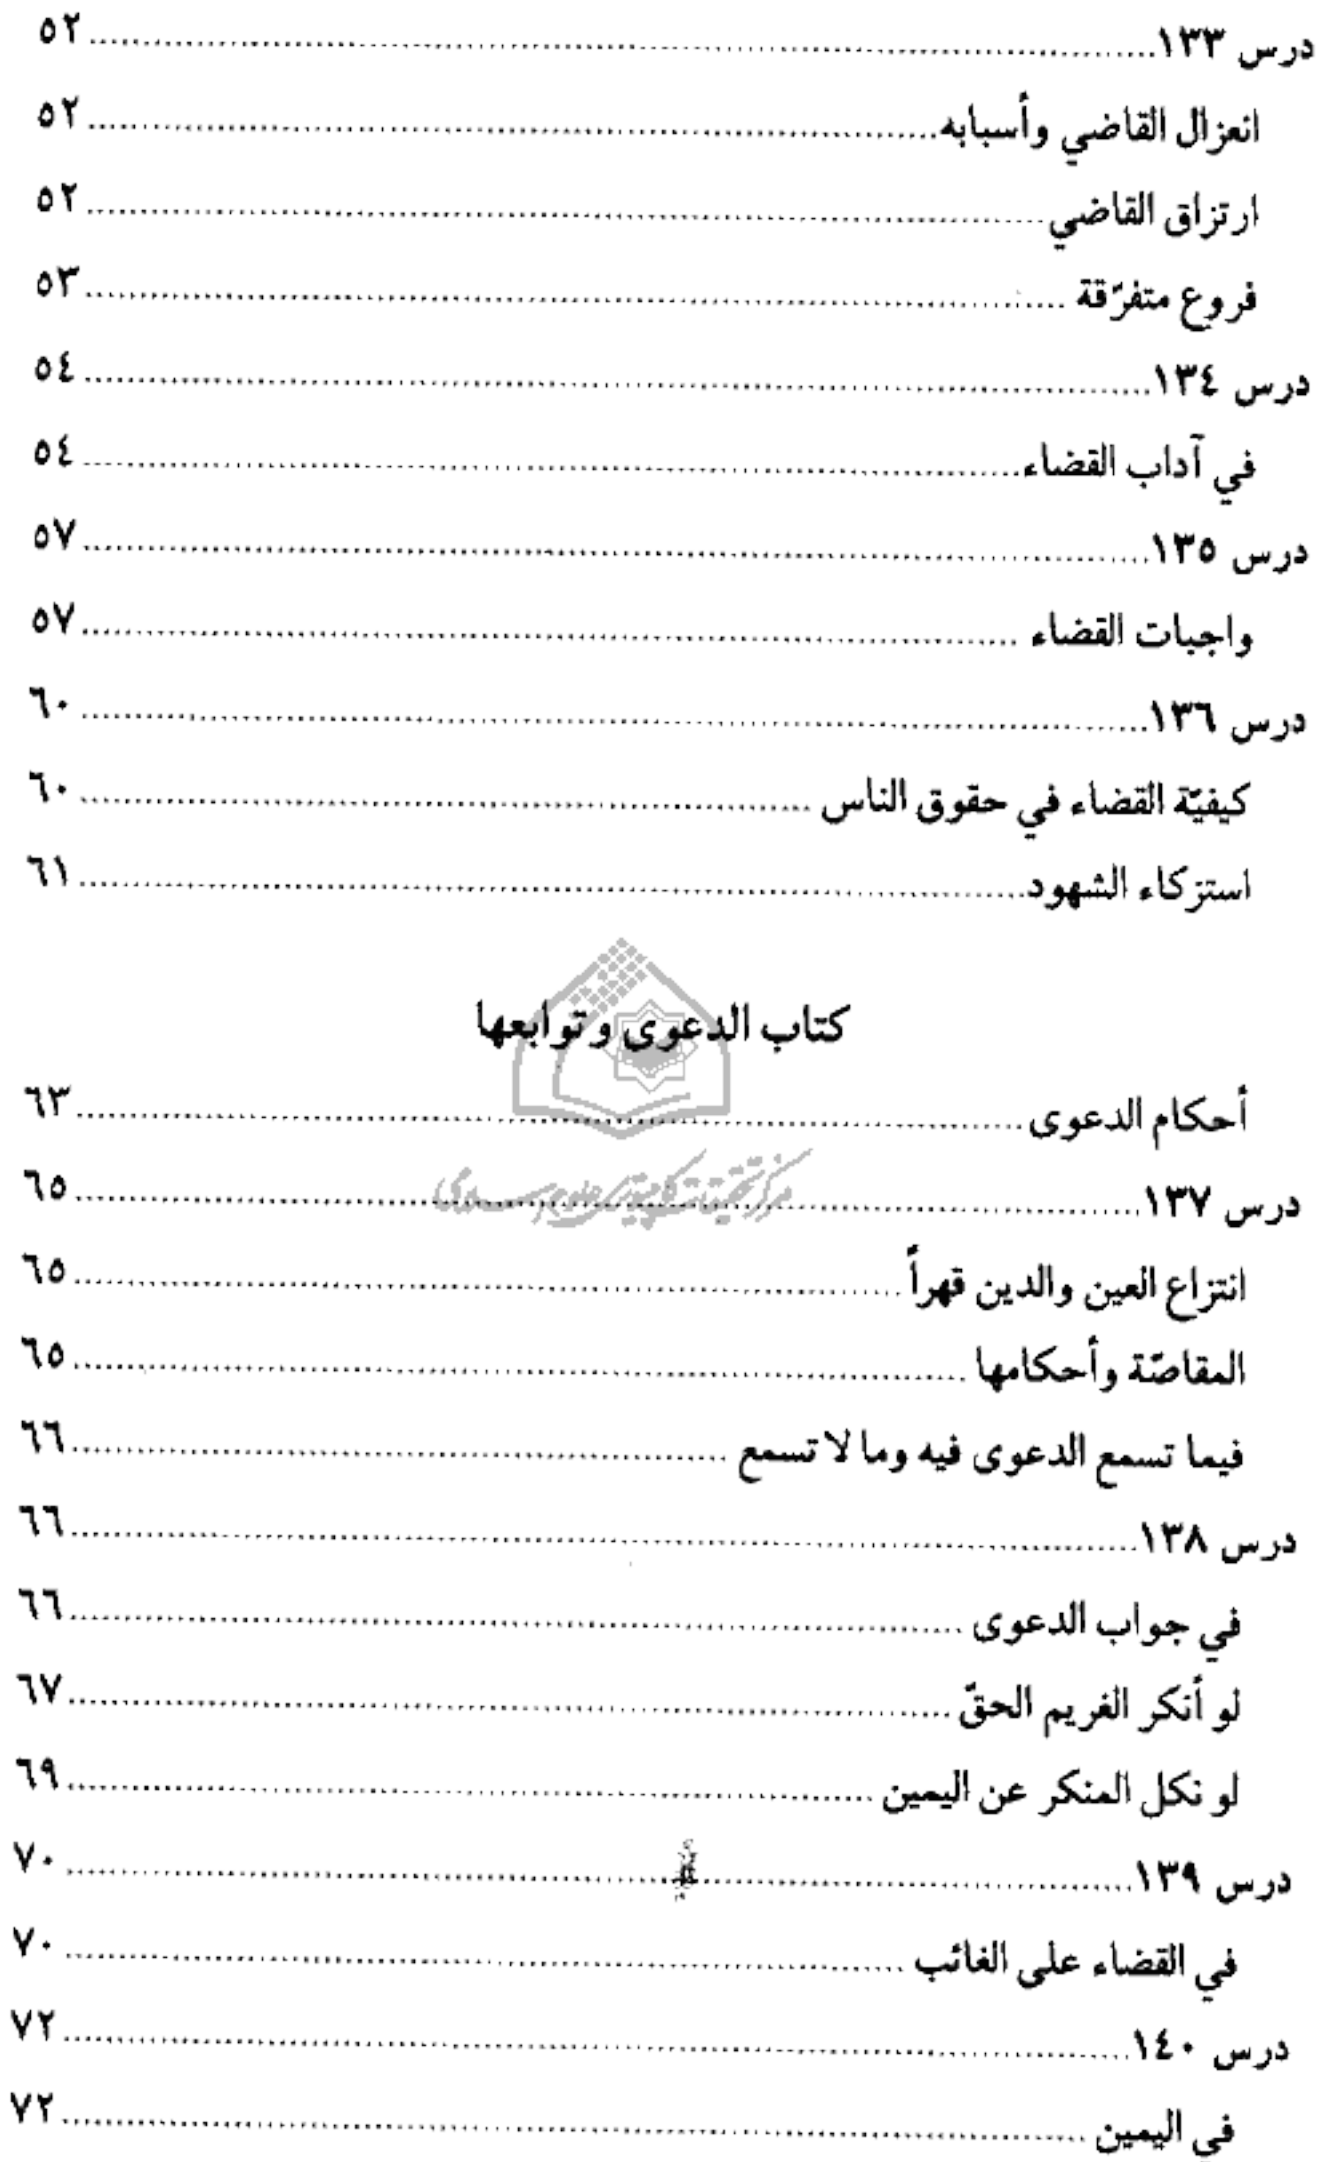 درس ١٣٣ ........ ٥٢
انعزال القاضي وأسبابه ........ ٥٢
ارتزاق القاضي ........ ٥٢
فروع متفرّقة ........ ٥٣
درس ١٣٤ ........ ٥٤
في آداب القضاء ........ ٥٤
درس ١٣٥ ........ ٥٧
واجبات القضاء ........ ٥٧
درس ١٣٦ ........ ٦٠
كيفيّة القضاء في حقوق الناس ........ ٦٠
استزكاء الشهود ........ ٦١
كتاب الدعوى وتوابعها
أحكام الدعوى ........ ٦٣
مركز تحقيقات كامپيوترى علوم اسلامى
درس ١٣٧ ........ ٦٥
انتزاع العين والدين قهراً ........ ٦٥
المقاصّة وأحكامها ........ ٦٥
فيما تسمع الدعوى فيه وما لا تسمع ........ ٦٦
درس ١٣٨ ........ ٦٦
في جواب الدعوى ........ ٦٦
لو أنكر الغريم الحقّ ........ ٦٧
لو نكل المنكر عن اليمين ........ ٦٩
درس ١٣٩ ........ ٧٠
في القضاء على الغائب ........ ٧٠
درس ١٤٠ ........ ٧٢
في اليمين ........ ٧٢